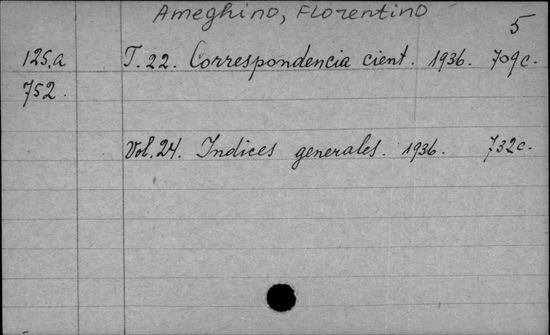 Ameghino, Florentino
5
125.a T. 22. Correspondencia cient. 1936. 709c.
752.
Vol. 24. Indices generales. 1936. 732c.